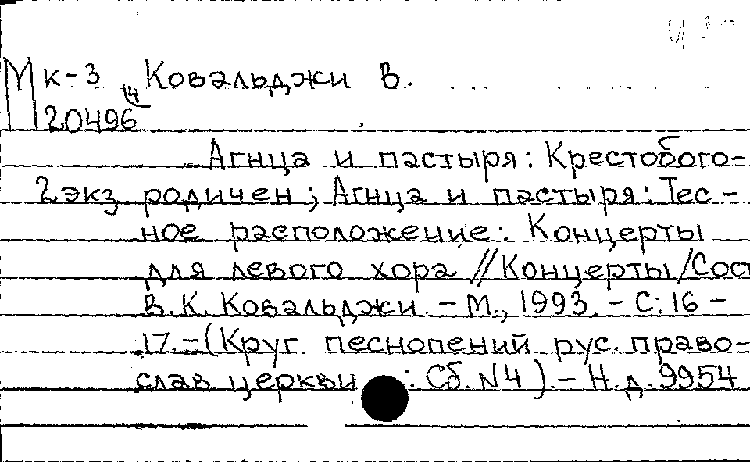 Мк-3 Ковальджи В.
14
20496
Агнца и пастыря: Крестобого-
2экз родичен; Агнца и пастыря: Тес-
ное расположение: Концерты
для левого хора // Концерты / Сост
В. К. Ковальджи - М., 1993. - С. 16-
17. - (Круг песнопений рус. право-
слав церкви : Сб. N4) - Н. д. 9954